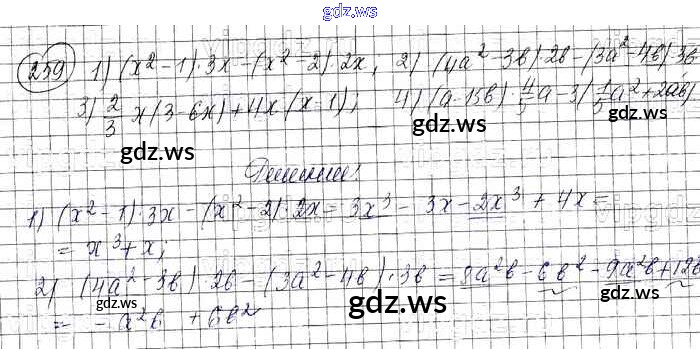 gdz.ws
259) 1) (x²-1)·3x-(x²-2)·2x; 2) (4a²-3b)2b-(3a²-4b)3b
3) 2/3 x(3-6x)+4x(x-1); 4) (a-15b)·4/5a-3(1/5a²+2ab)
gdz.ws gdz.ws
Решение:
1) (x²-1)·3x-(x²-2)·2x=3x³-3x-2x³+4x=
=x³+x;
gdz.ws gdz.ws
2) (4a²-3b)·2b-(3a²-4b)·3b=8a²b-6b²-9a²b+12b
=-a²b+6b²
gdz.ws
gdz.ws